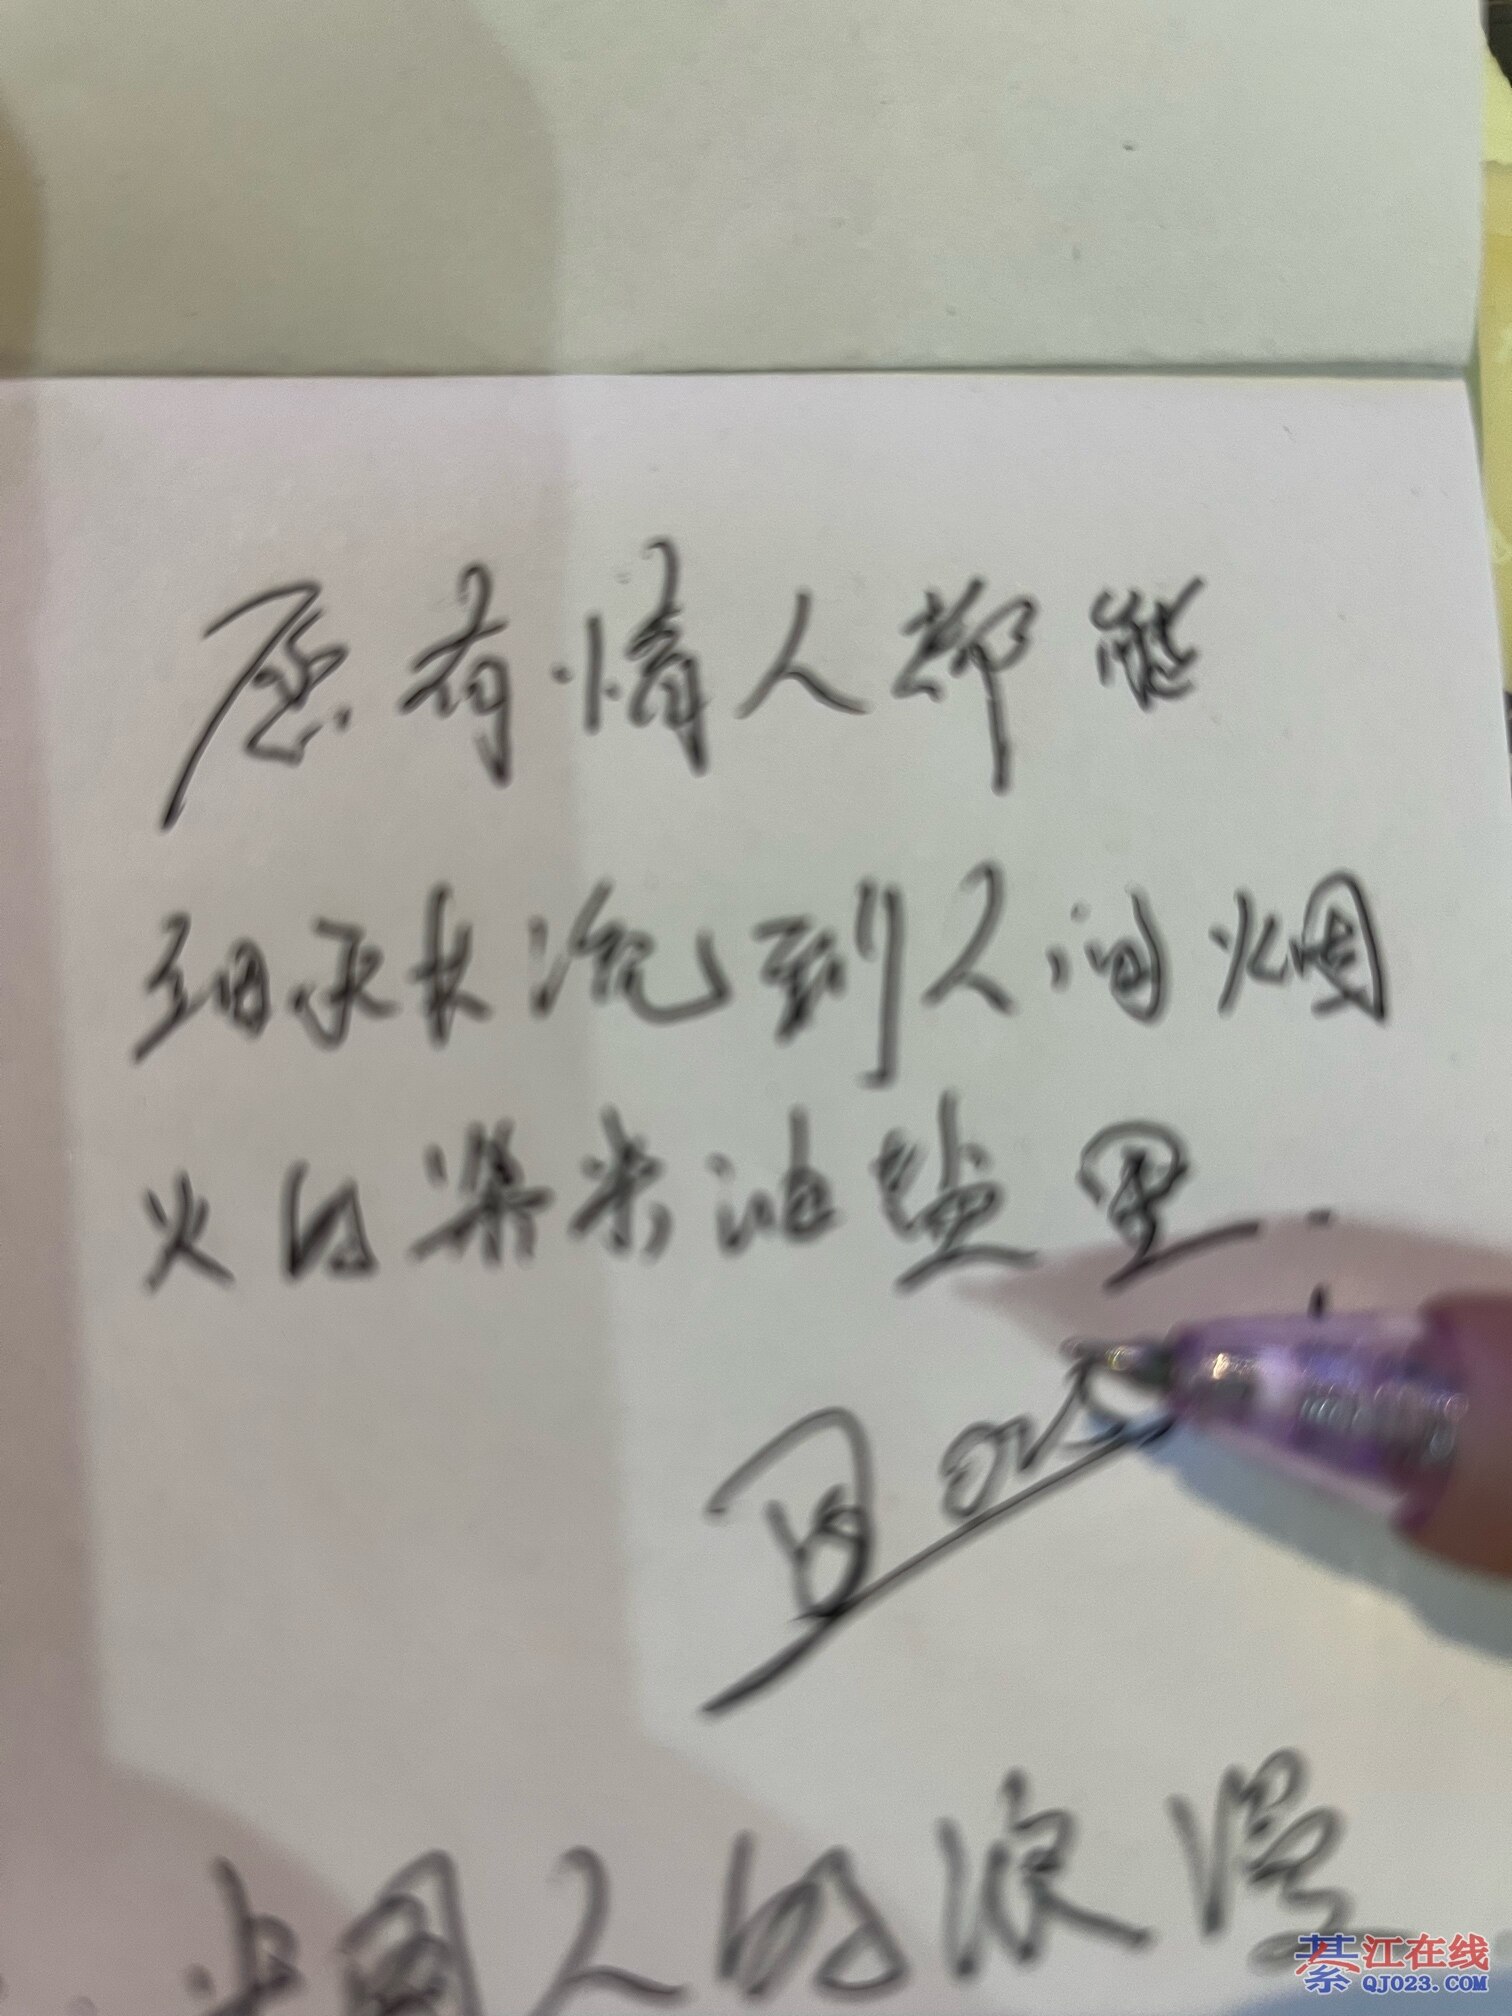 愿有情人都能
细水长流到人间烟
火的柴米油盐里
中国人的浪漫
綦江在线
QJ023.COM